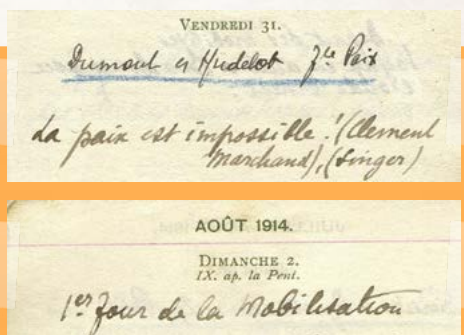 VENDREDI 31.
Dumont et Hudelot Jce Paix
La paix est impossible! (Clement
Marchand), (Singer)
AOÛT 1914.
DIMANCHE 2.
IX. ap. la Pent.
1er Jour de la Mobilisation